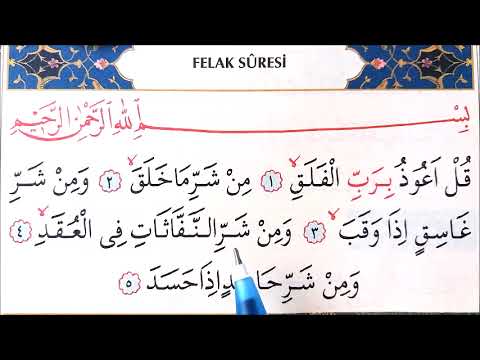 FELAK SÛRESİ
بِسْمِ اللّٰهِ الرَّحْمٰنِ الرَّحِيمِ
قُلْ اَعُوذُ بِرَبِّ الْفَلَقِ ﴿١﴾ مِنْ شَرِّ مَا خَلَقَ ﴿٢﴾ وَمِنْ شَرِّ
غَاسِقٍ اِذَا وَقَبَ ﴿٣﴾ وَمِنْ شَرِّ النَّفَّاثَاتِ فِى الْعُقَدِ ﴿٤﴾
وَمِنْ شَرِّ اِذَا حَسَدَ ﴿٥﴾